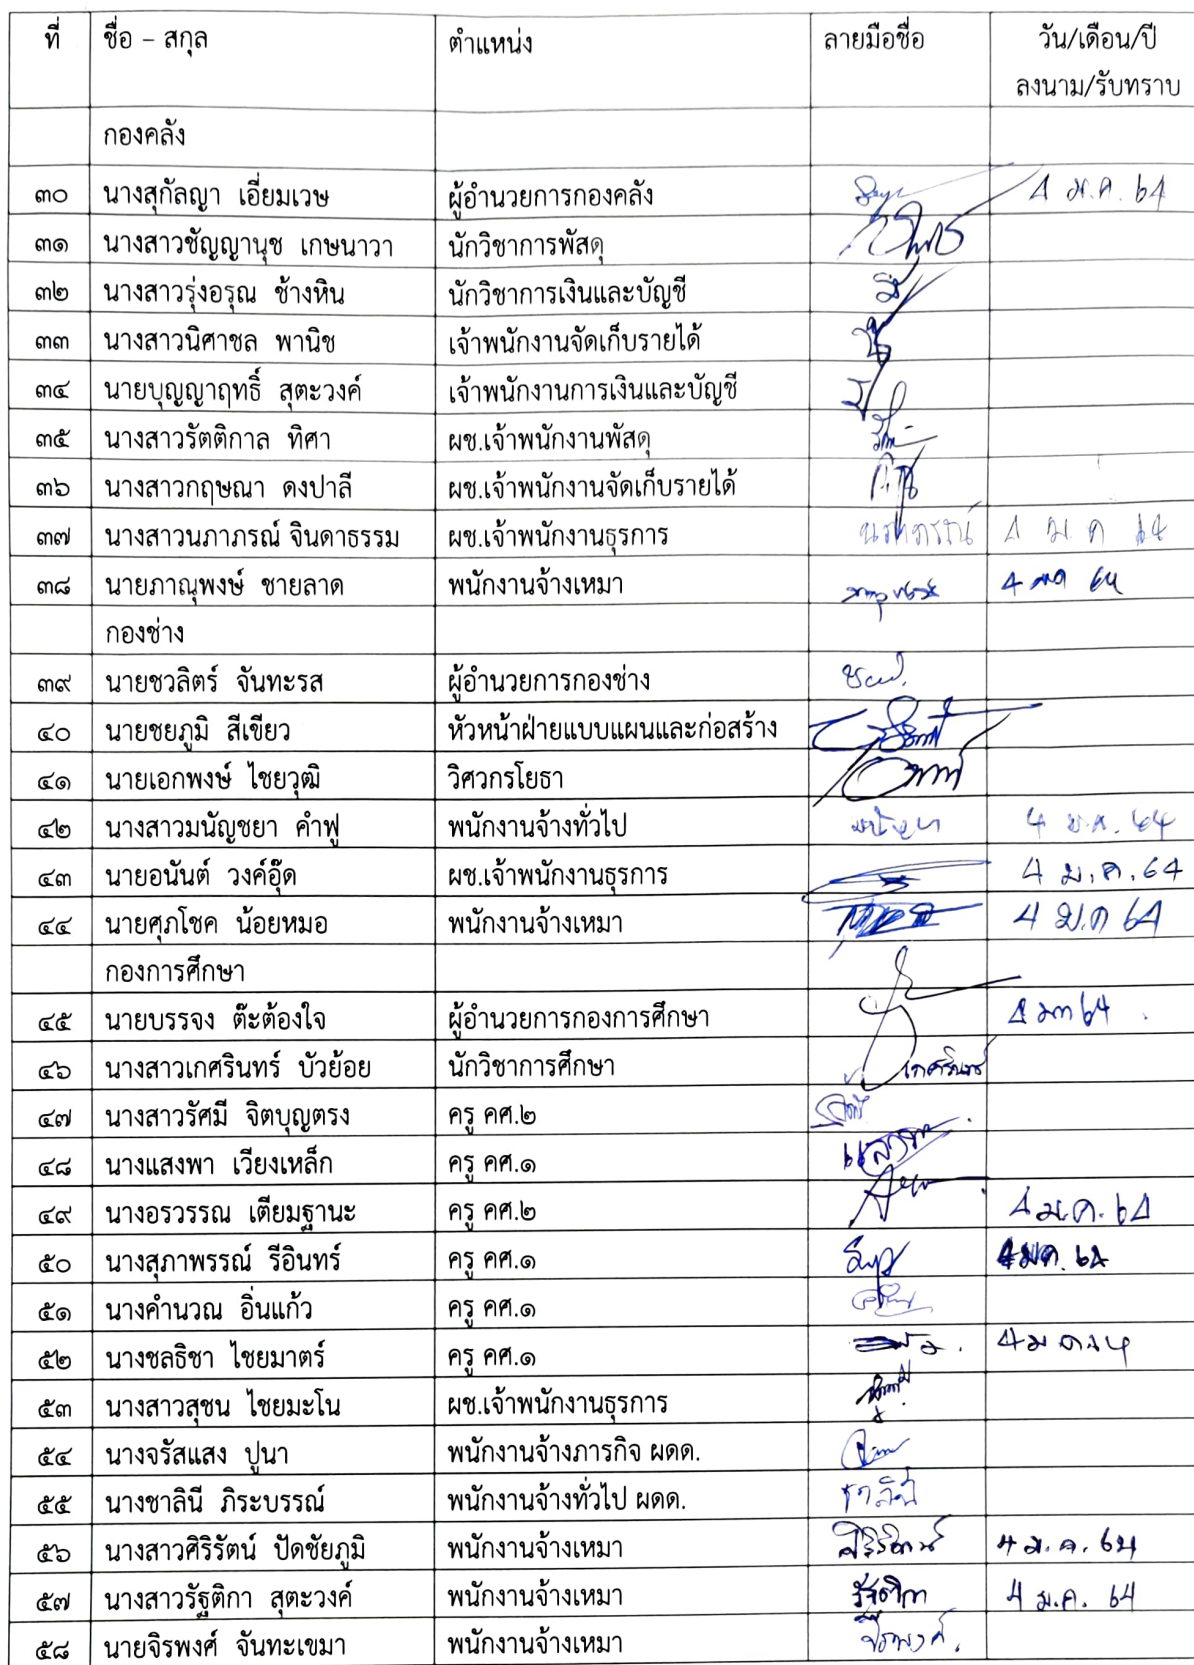 ที่ ชื่อ – สกุล ตำแหน่ง ลายมือชื่อ วัน/เดือน/ปี
ลงนาม/รับทราบ
กองคลัง
๓๐ นางสุกัลญา เอี่ยมเวษ ผู้อำนวยการกองคลัง 4 ม.ค. 64
๓๑ นางสาวชัญญานุช เกษนาวา นักวิชาการพัสดุ
๓๒ นางสาวรุ่งอรุณ ช้างหิน นักวิชาการเงินและบัญชี
๓๓ นางสาวนิศาชล พานิช เจ้าพนักงานจัดเก็บรายได้
๓๔ นายบุญญาฤทธิ์ สุตะวงค์ เจ้าพนักงานการเงินและบัญชี
๓๕ นางสาวรัตติกาล ทิศา ผช.เจ้าพนักงานพัสดุ
๓๖ นางสาวกฤษณา ดงปาลี ผช.เจ้าพนักงานจัดเก็บรายได้
๓๗ นางสาวนภาภรณ์ จินดาธรรม ผช.เจ้าพนักงานธุรการ นภาภรณ์ 4 ม.ค 64
๓๘ นายภาณุพงษ์ ชายลาด พนักงานจ้างเหมา 4 มค 64
กองช่าง
๓๙ นายชวลิตร์ จันทะรส ผู้อำนวยการกองช่าง
๔๐ นายชยภูมิ สีเขียว หัวหน้าฝ่ายแบบแผนและก่อสร้าง
๔๑ นายเอกพงษ์ ไชยวุฒิ วิศวกรโยธา
๔๒ นางสาวมนัญชยา คำฟู พนักงานจ้างทั่วไป 4 ม.ค. 64
๔๓ นายอนันต์ วงค์อุ๊ด ผช.เจ้าพนักงานธุรการ 4 ม.ค.64
๔๔ นายศุภโชค น้อยหมอ พนักงานจ้างเหมา 4 ม.ค 64
กองการศึกษา
๔๕ นายบรรจง ต๊ะต้องใจ ผู้อำนวยการกองการศึกษา 4 มค 64
๔๖ นางสาวเกศรินทร์ บัวย้อย นักวิชาการศึกษา เกศรินทร์
๔๗ นางสาวรัศมี จิตบุญตรง ครู คศ.๒
๔๘ นางแสงพา เวียงเหล็ก ครู คศ.๑
๔๙ นางอรวรรณ เตียมฐานะ ครู คศ.๒ 4 ม.ค. 64
๕๐ นางสุภาพรรณ์ รีอินทร์ ครู คศ.๑ 4 มค. 64
๕๑ นางคำนวณ อิ่นแก้ว ครู คศ.๑
๕๒ นางชลธิชา ไชยมาตร์ ครู คศ.๑
๕๓ นางสาวสุชน ไชยมะโน ผช.เจ้าพนักงานธุรการ
๕๔ นางจรัสแสง ปูนา พนักงานจ้างภารกิจ ผดด.
๕๕ นางชาลินี ภิระบรรณ์ พนักงานจ้างทั่วไป ผดด. ชาลินี
๕๖ นางสาวศิริรัตน์ ปัดชัยภูมิ พนักงานจ้างเหมา ศิริรัตน์ 4 ม.ค. 64
๕๗ นางสาวรัฐติกา สุตะวงค์ พนักงานจ้างเหมา รัฐติกา 4 ม.ค. 64
๕๘ นายจิรพงศ์ จันทะเขมา พนักงานจ้างเหมา จิรพงศ์